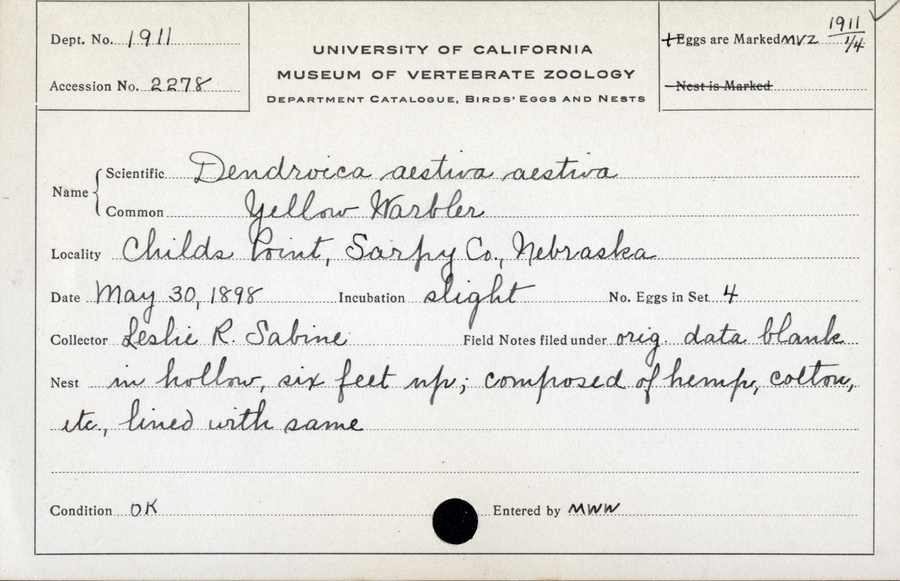 Dept. No. 1911
Accession No. 2278
UNIVERSITY OF CALIFORNIA
MUSEUM OF VERTEBRATE ZOOLOGY
DEPARTMENT CATALOGUE, BIRDS' EGGS AND NESTS
Eggs are Marked MVZ 1911 1/4
Nest is Marked
Name
Scientific Dendroica aestiva aestiva
Common Yellow Warbler
Locality Childs Point, Sarpy Co., Nebraska
Date May 30, 1898 Incubation slight No. Eggs in Set 4
Collector Leslie R. Sabine Field Notes filed under orig. data blank
Nest in hollow, six feet up; composed of hemp, cotton,
etc., lined with same
Condition OK Entered by MWW